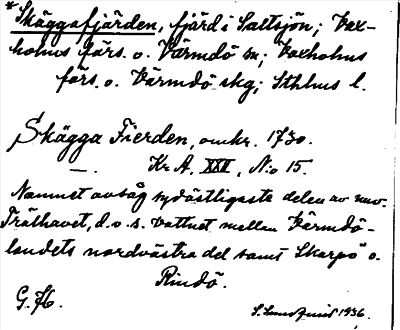 *Skäggafjärden, fjärd i Saltsjön; Vax-
holms förs. o. Värmdö sn; Vaxholms
förs. o. Värmdö skg; Sthlms l.
Skägga Fierden, omkr. 1730.
—. Kr. A. XXII, No 15.
Namnet avsåg sydöstligaste delen av nuv.
Trälhavet, d.v.s. vattnet mellan Värmdö-
landets nordvästra del samt Skarpö o.
Rindö.
G. H.
1936.